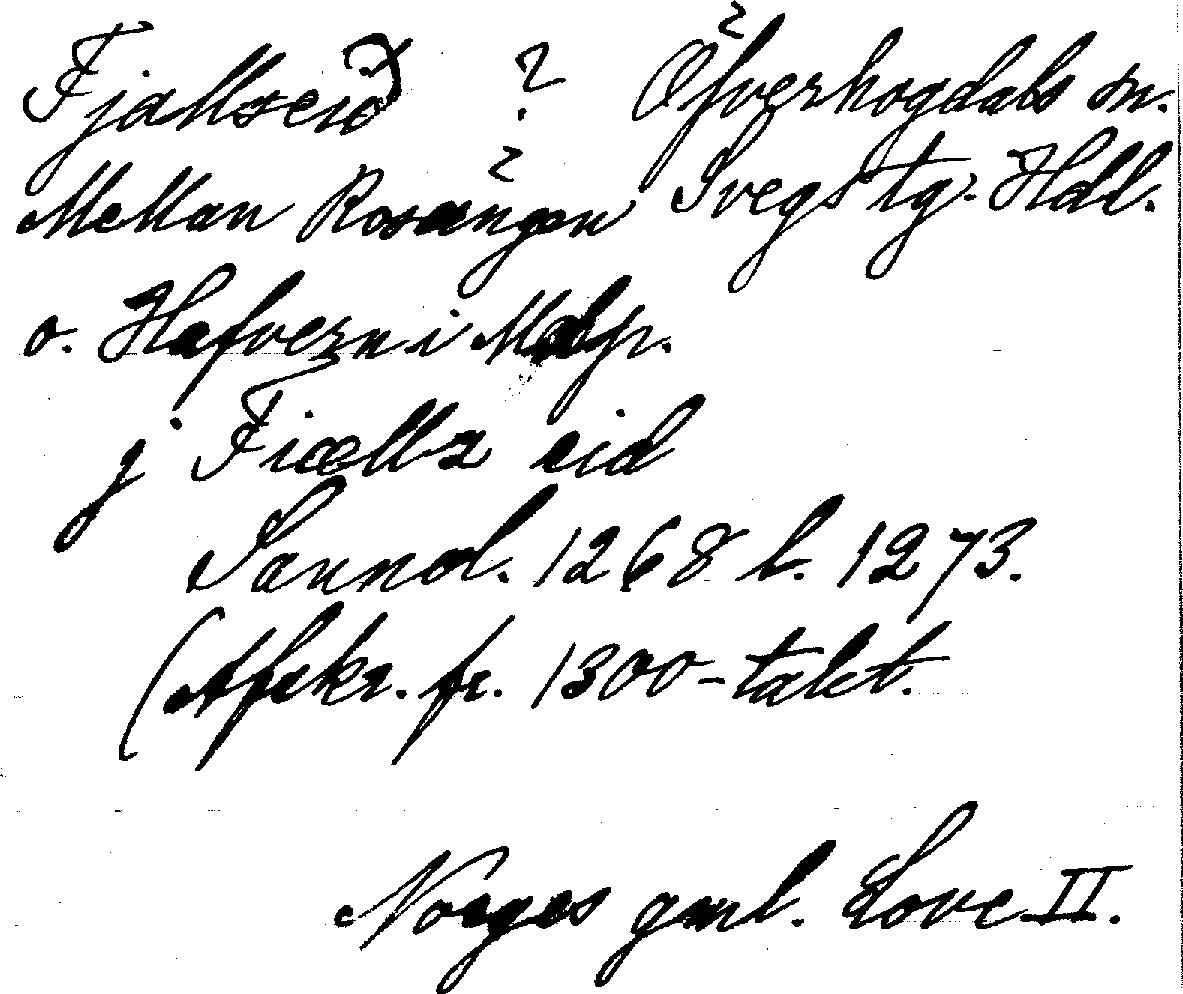 Fjallzeið ? Öfverhogdals sn.
Mellan Rosängen Svegs tg. Hdl.
o. Hafvern i Mdlp.
j Fiællz eid
Sannol. 1268 l. 1273.
(Afskr. fr. 1300-talet.
Norges gml. Love II.